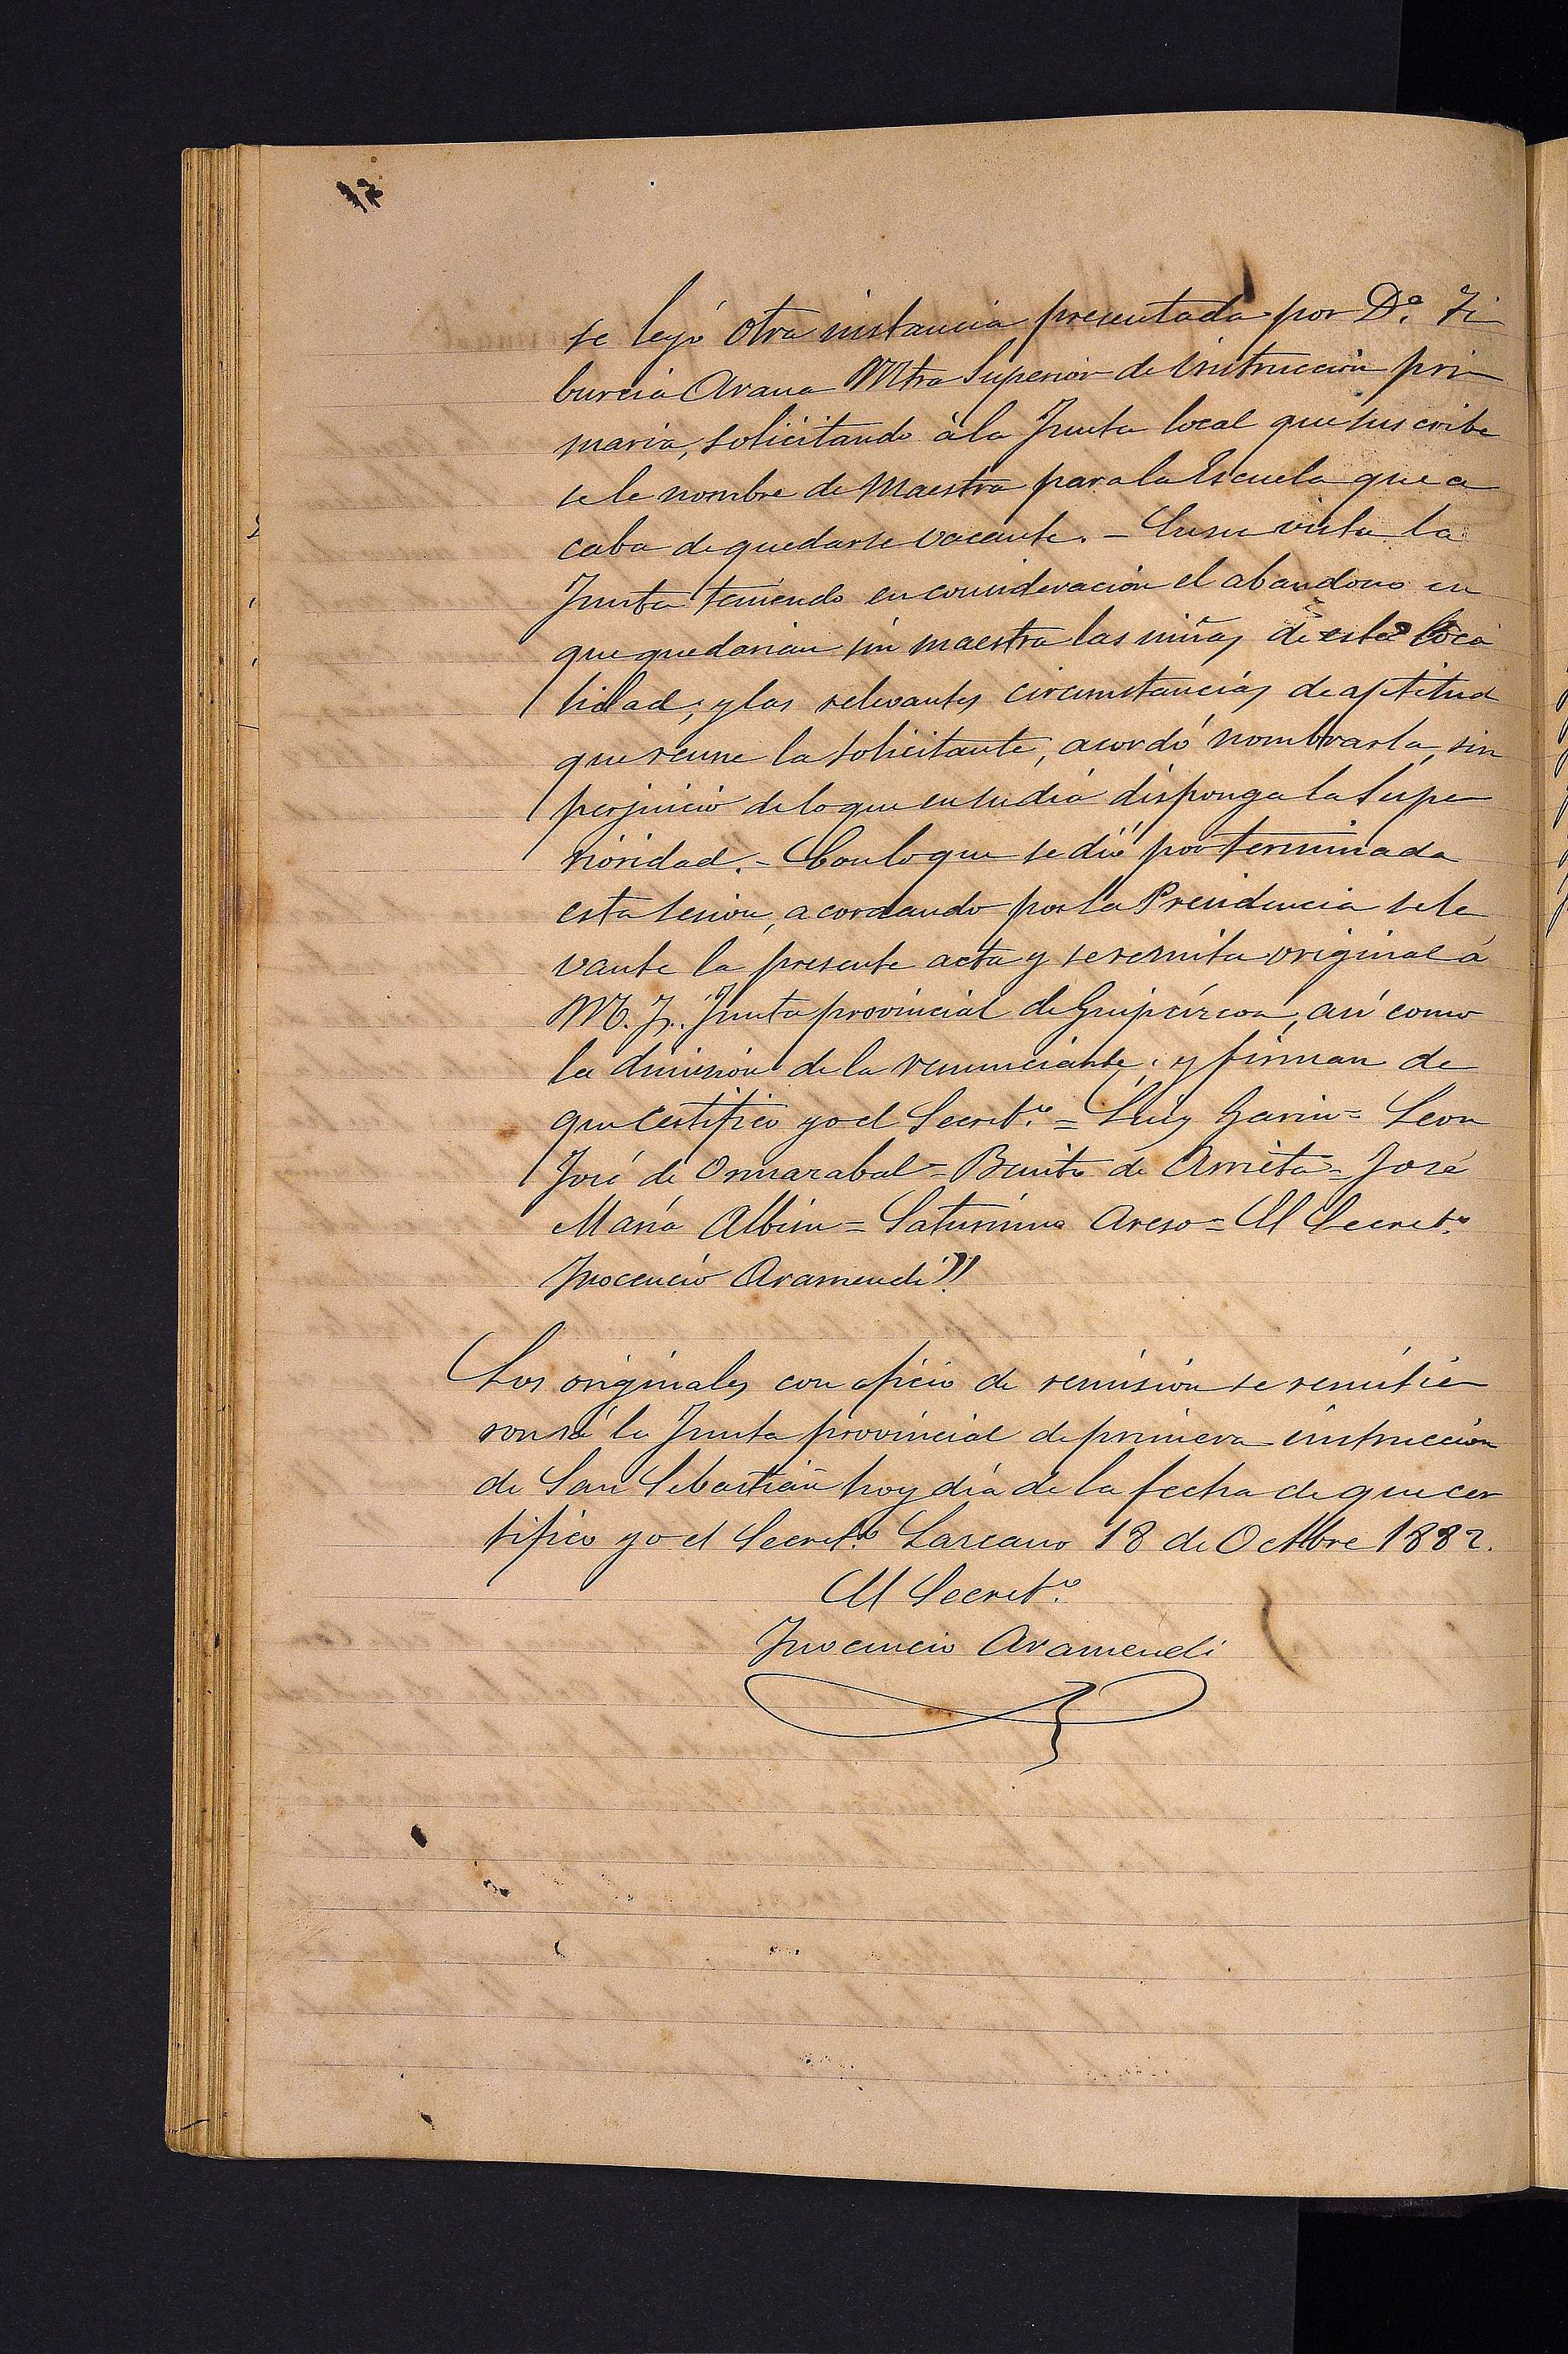 12
se leyó otra instancia presentada por Dª. Ti
burcia Arana Mtra Superior de instrucción pri
maria, solicitando á la Junta local que suscribe
se le nombre de Maestra para la Escuela que a
caba de quedarse vacante. - En su vista la
Junta teniendo en consideración el abandono en
que quedarian sin maestra las niñas de esta loca
lidad; y las relevantes circunstancias de aptitud
que reune la solicitante, acordó nombrarla, sin
perjuicio de lo que en su dia disponga la Supe
rioridad. - Con lo que se dió por terminada
esta sesion, acordando por la Presidencia se le
vante la presente acta y se remita original á
M. I. Junta provincial de Guipúzcoa, asi como
la dimisión de la renunciante; y firman de
que certifico yo el Secretº. = Luis Garin = Leon
José de Ormazabal = Benito de Arrieta = José
Maria Albisu = Saturnino Areso = El Secretº.
Inocencio Aramendi"
Los originales con oficio de remisión se remitie
ron á la Junta provincial de primera instrucción
de San Sebastián hoy dia de la fecha de que cer
tifico yo el Secretº. Lazcano 18 de Octbre 1882.
El Secretº.
Inocencio Aramendi